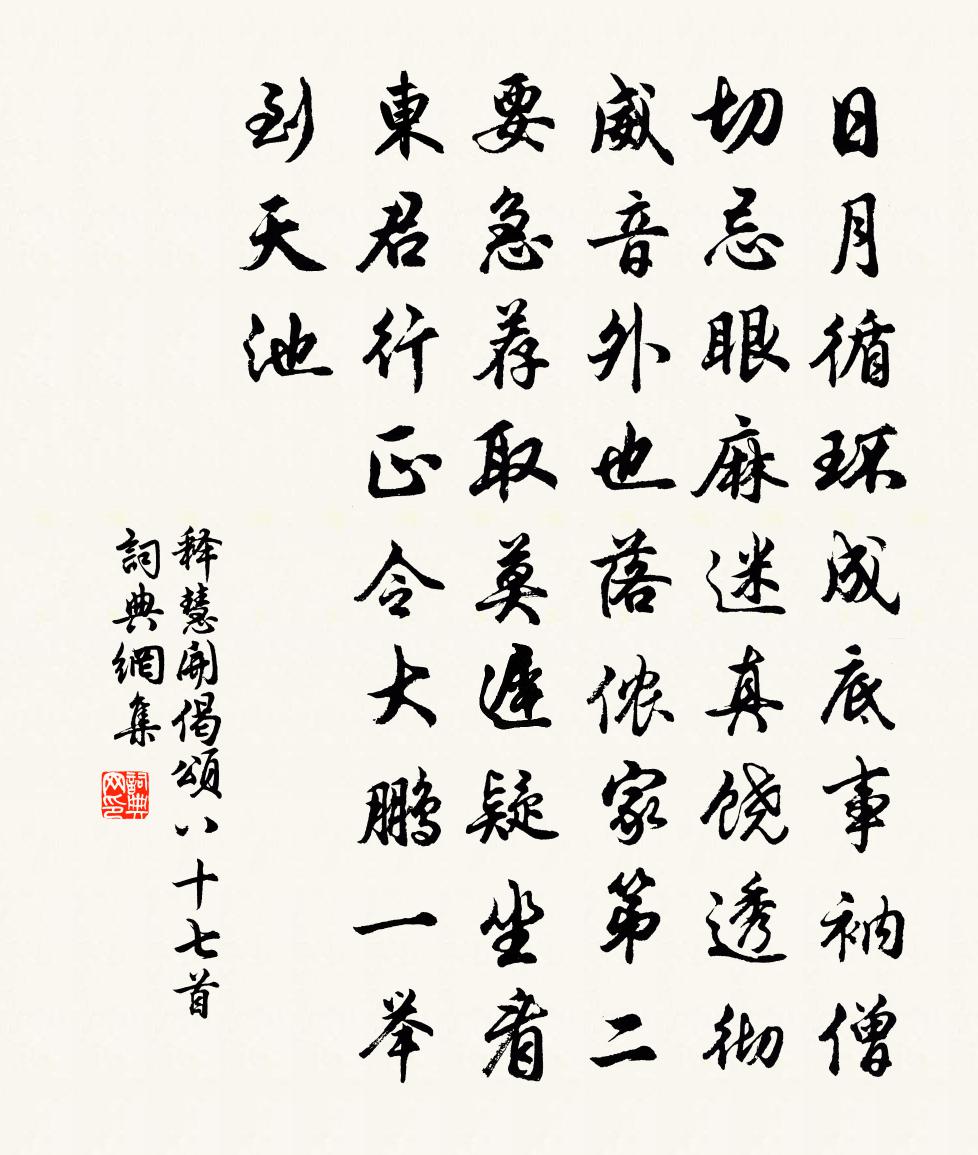 日月循环成底事衲僧
切忌眼麻迷真饶透彻
威音外也落侬家第二
要急荐取莫遲疑坐看
東君行正令大鹏一举
到天池
释慧開偈頌八十七首
詞典網集
詞典网印